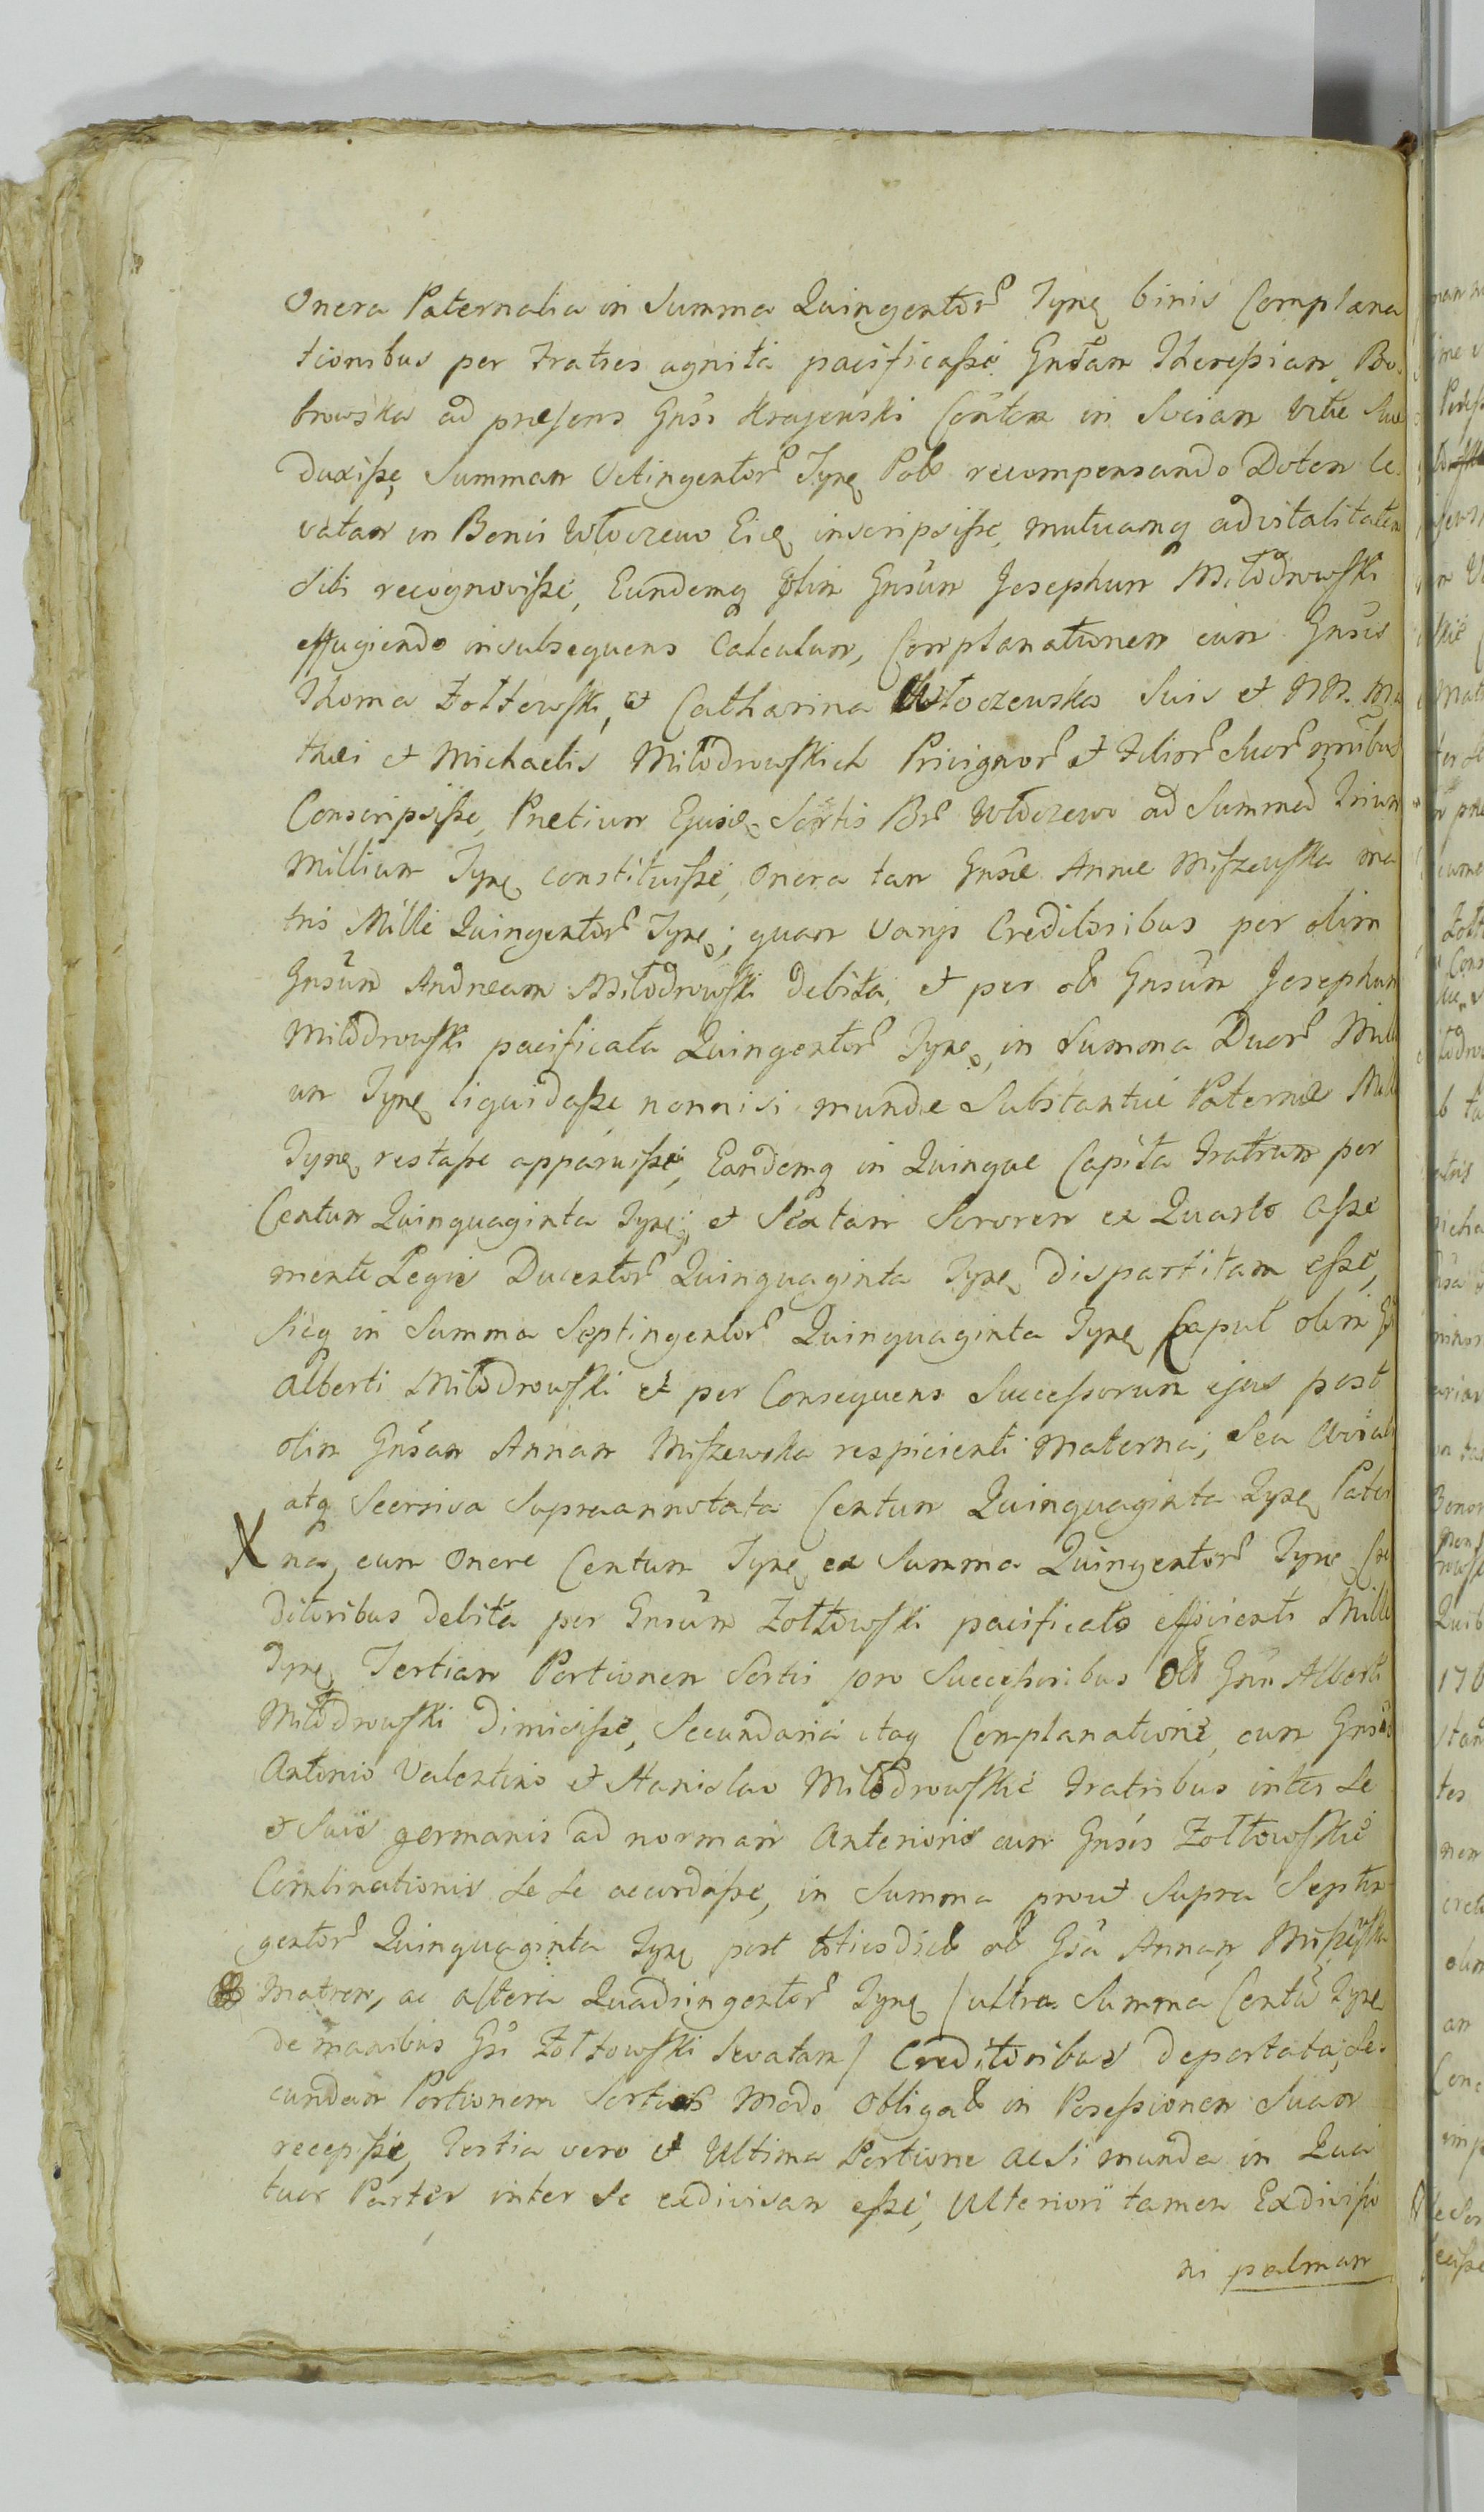 Onera Paternalia in Summa Quingentor Tynf binis Complana
tionibus per Fratres agnita pacificasse Gnsam Theressiam Bo
browska ad praesens Gnsi Krajewski Contem in Sociam Vitae Suae
duxisse, Summam Octingentor Tynf Pol recompensando Dotem le
vatam in Bonis Włoczewo Eid inscripsisse, mutuamq advitalitatem
Sibi recognovisse, Eundemq olim Gnsum Josephum Miłodrowski
effugiendo insubsequens Calculum, Complanationem cum Gnsis
Thoma Żołtowski, et Catharina Włoczewska Suis et NN. Ma
thei et Michaelis Miłodrowskich Privignor et Filior Suor omnibus
Conscripsisse, Pretium Ejusd Sortis Br Włoczewo ad Summam Trium
Millium Tynf constituisse, Onera tam Gnsae Annae Miszewska ma
tris Mille Quingentor Tynf; quam Varijs Creditoribus per olim
Gnsum Andream Miłodrowski debita, et per ol Gnsum Josephum
Miłodrowski pacificata Quingentor Tynf, in Summa Duor Milli
um Tynf liquidasse, nonnisi mundae Substantiae Paternae Mille
Tynf restasse apparuisse, Eandemq in Quinque Capita Fratrum per
Centum Quinquaginta Tynf, et Sextam Sororem ex Quarto asse
mente Legis Ducentor Quinquaginta Tynf dispartitam esse,
Sicq in Summa Septingentor Quinquaginta Tynf Caput olim G
Alberti Miłodrowski et per Consequens Successorum ejus post
olim Gnsam Annam Miszewska respicienti Materna, Seu Aviali
atq Seorsiva Supraannotata Centum Quinquaginta Tynf Pater
X na, cum Onere Centum Tynf ex Summa Quingentor Tynf Cre
ditoribus debita per Gnsum Żołtowski pacificato efficienti Mille
Tynf Tertiam Portionem Sortis pro Successoribus Ol Gsn Alberti
Miłodrowski dimisisse, Secundaria itaq Complanatione, cum Gnsis
Antonio Valentino et Stanislao Miłodrowskie Fratribus inter Se
et Suis germanis ad normam Anterioris cum Gnsis Żołtowskie
Combinationis Se Se accordasse, in Summa prout Supra Septin
gentor Quinquaginta Tynf post toties dict ol Gsa Annam Miszewska
Matrem, ac altera Quadringentor Tynf (ultra Summa Centu Tynf
de manibus Gsi Żołtowski levatam) Creditoribus deportata, Se
cundam Portionem Sortis modo obligat in Possessionem Suam
recepisse, Tertia vero et Ultima Portione acsi munda in Qua
tuor Partes inter Se exdivisam esse, Ulteriori tamen Exdivisio
ni palmam